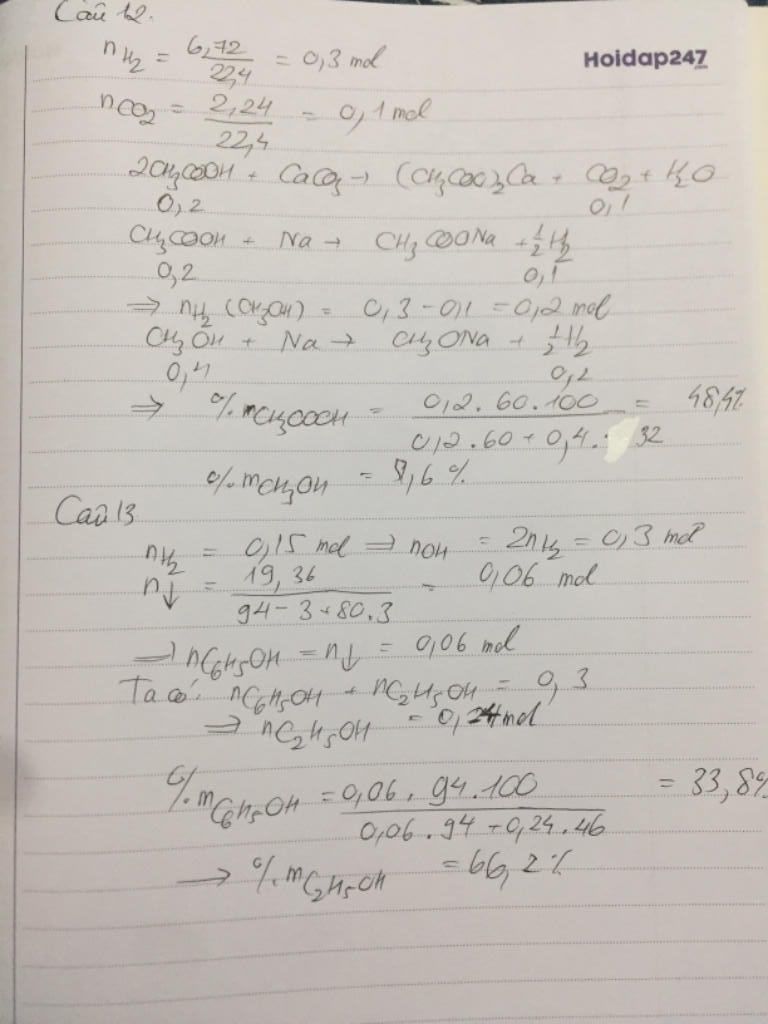 Câu 12.
Hoidap247
nH2 = 6,72/22,4 = 0,3 mol
nCO2 = 2,24/22,4 = 0,1 mol
2CH3COOH + CaCO3 → (CH3COO)2Ca + CO2 + H2O
0,2 0,1
CH3COOH + Na → CH3COONa + 1/2H2
0,2 0,1
⇒ nH2 (CH3OH) = 0,3 - 0,1 = 0,2 mol
CH3OH + Na → CH3ONa + 1/2H2
0,4 0,2
⇒ %mCH3COOH = 0,2.60.100/0,2.60+0,4. 32 = 48,4%
%mCH3OH = ,6%
Câu 13
nH2 = 0,15 mol ⇒ nOH = 2nH2 = 0,3 mol
n↓ = 19,36/94-3+80.3 = 0,06 mol
⇒ nC6H5OH = n↓ = 0,06 mol
Ta có: nC6H5OH + nC2H5OH = 0,3
⇒ nC2H5OH = 0,24 mol
%mC6H5OH = 0,06.94.100/0,06.94+0,24.46 = 33,8%
→ %mC2H5OH = 66,2%